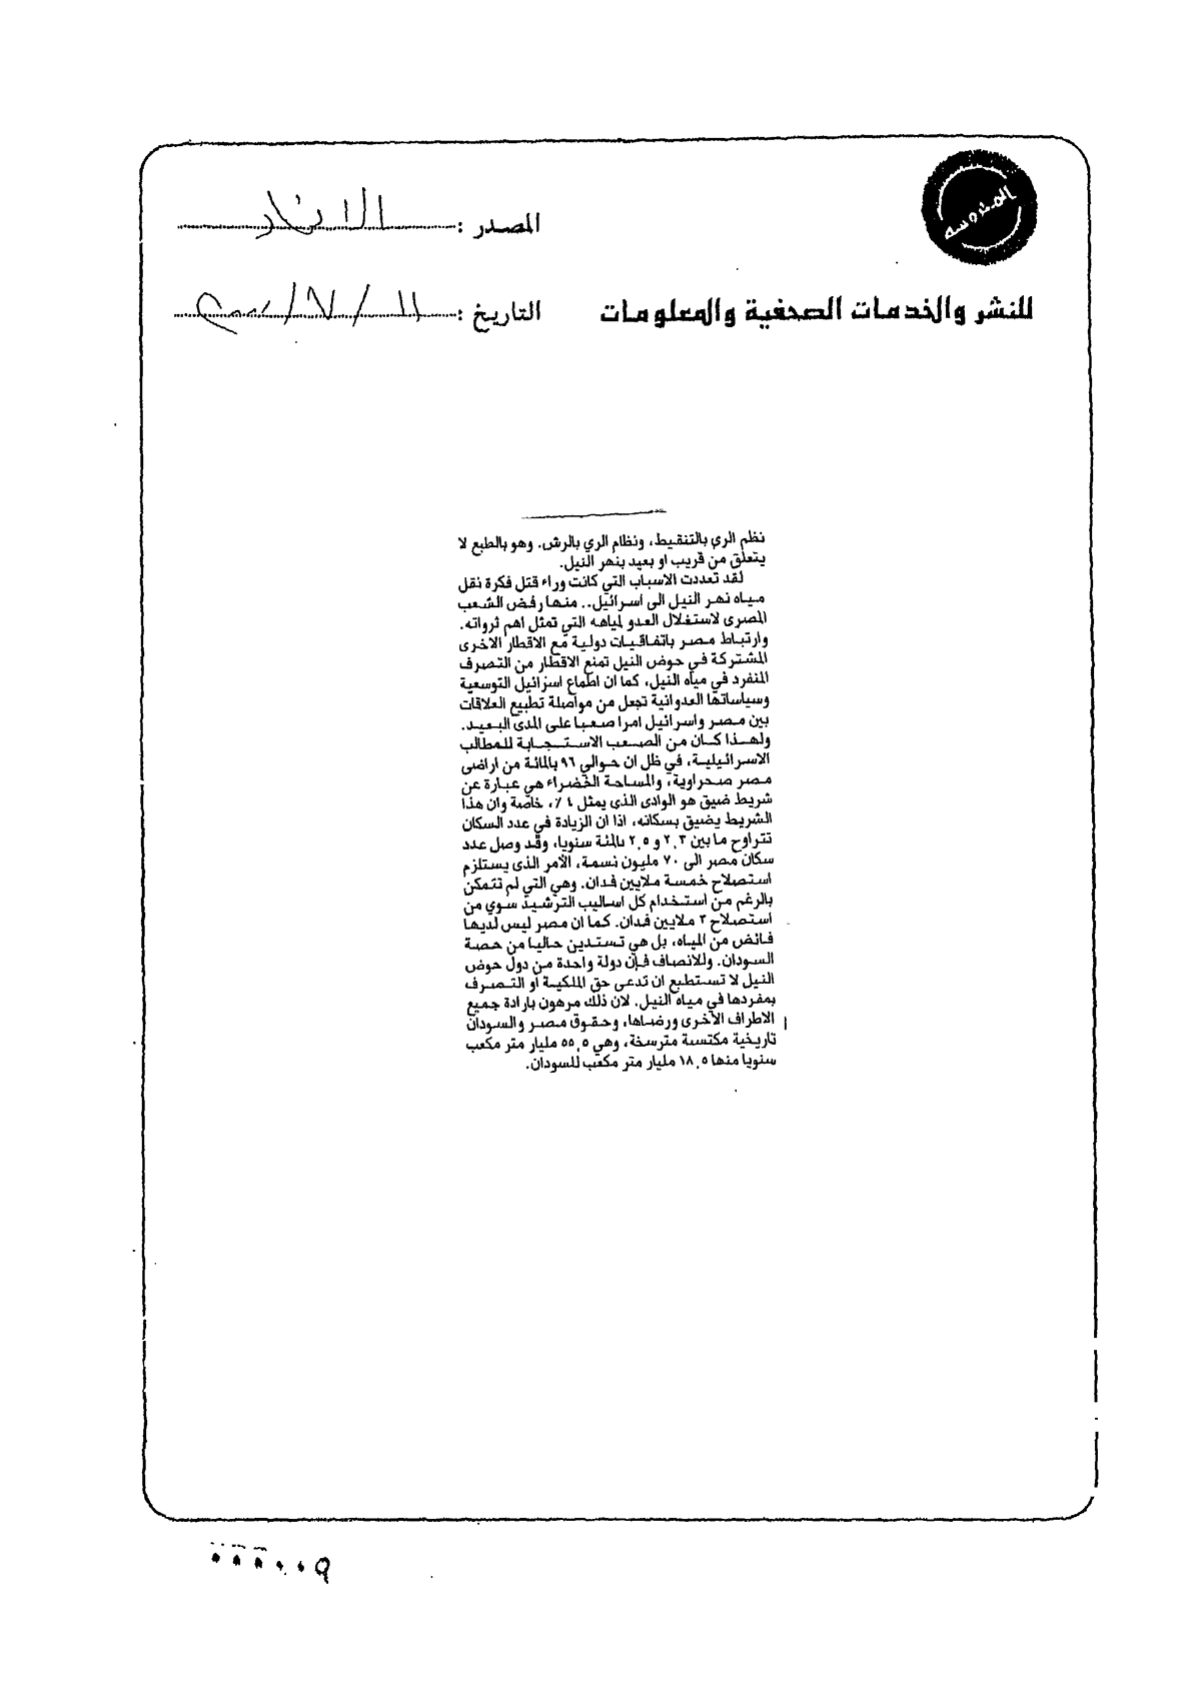 المحروسة
المصدر :
للنشر والخدمات الصحفية والمعلومات
التاريخ : ١١ / ٧ / ٢٠٠٠
نظم الري بالتنقيط، ونظام الري بالرش. وهو بالطبع لا
يتعلق من قريب او بعيد بنهر النيل.
لقد تعددت الاسباب التي كانت وراء قتل فكرة نقل
مياه نهر النيل الى اسرائيل.. منها رفض الشعب
المصرى لاستغلال العدو لمياهه التي تمثل اهم ثرواته.
وارتباط مصر باتفاقيات دولية مع الاقطار الاخرى
المشتركة في حوض النيل تمنع الاقطار من التصرف
المنفرد في مياه النيل، كما ان اطماع اسرائيل التوسعية
وسياساتها العدوانية تجعل من مواصلة تطبيع العلاقات
بين مصر واسرائيل امرا صعبا على المدى البعيد.
ولهذا كان من الصعب الاستجابة للمطالب
الاسرائيلية، في ظل ان حوالي ٩٦ بالمائة من اراضى
مصر صحراوية، والمساحة الخضراء هي عبارة عن
شريط ضيق هو الوادى الذى يمثل ٤٪، خاصة وان هذا
الشريط يضيق بسكانه، اذا ان الزيادة في عدد السكان
تتراوح ما بين ٢,٣ و ٢,٥ بالمئة سنويا، وقد وصل عدد
سكان مصر الى ٧٠ مليون نسمة، الأمر الذى يستلزم
استصلاح خمسة ملايين فدان. وهي التي لم تتمكن
بالرغم من استخدام كل اساليب الترشيد سوي من
استصلاح ٣ ملايين فدان. كما ان مصر ليس لديها
فائض من المياه، بل هي تستدين حاليا من حصة
السودان. وللانصاف فإن دولة واحدة من دول حوض
النيل لا تستطيع ان تدعى حق الملكية أو التصرف
بمفردها في مياه النيل. لان ذلك مرهون بارادة جميع
الاطراف الأخرى ورضاها، وحقوق مصر والسودان
تاريخية مكتسبة مترسخة، وهي ٥٥,٥ مليار متر مكعب
سنويا منها ١٨,٥ مليار متر مكعب للسودان.